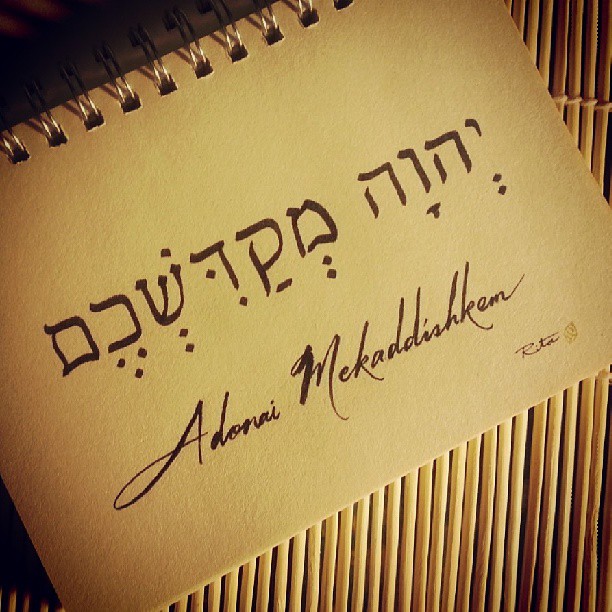 יְהוָה מְקַדִּשְׁכֶם
Adonai Mekaddishkem
Rita